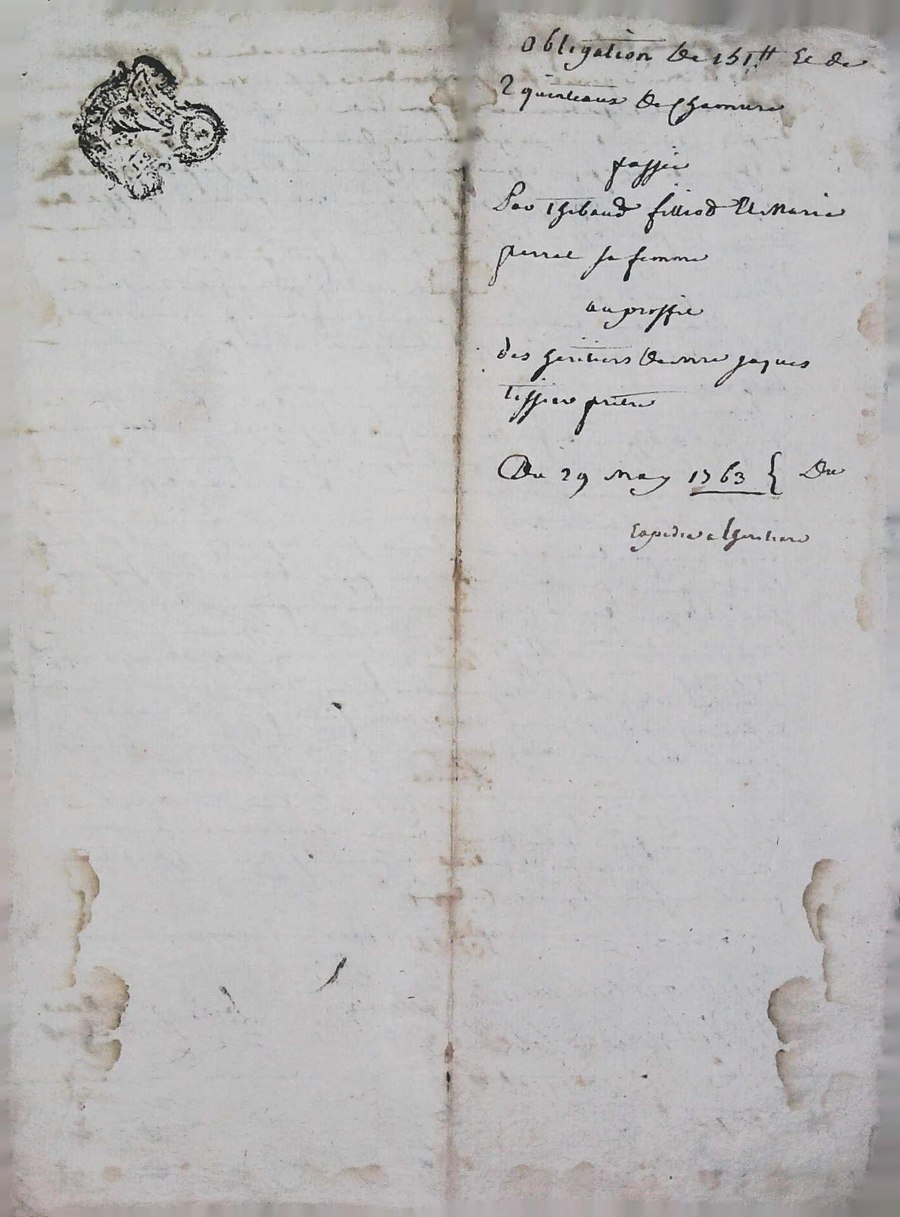 Obligation De 151ll Et de
2 quinteaux De Chanvre
passée
Par Thibaud filliod Et Marie
perret sa femme
au proffit
des heritiers De mre jaques
tissier prêtre
Du 29 may 1763 { Du
Expediée a l'heritiere